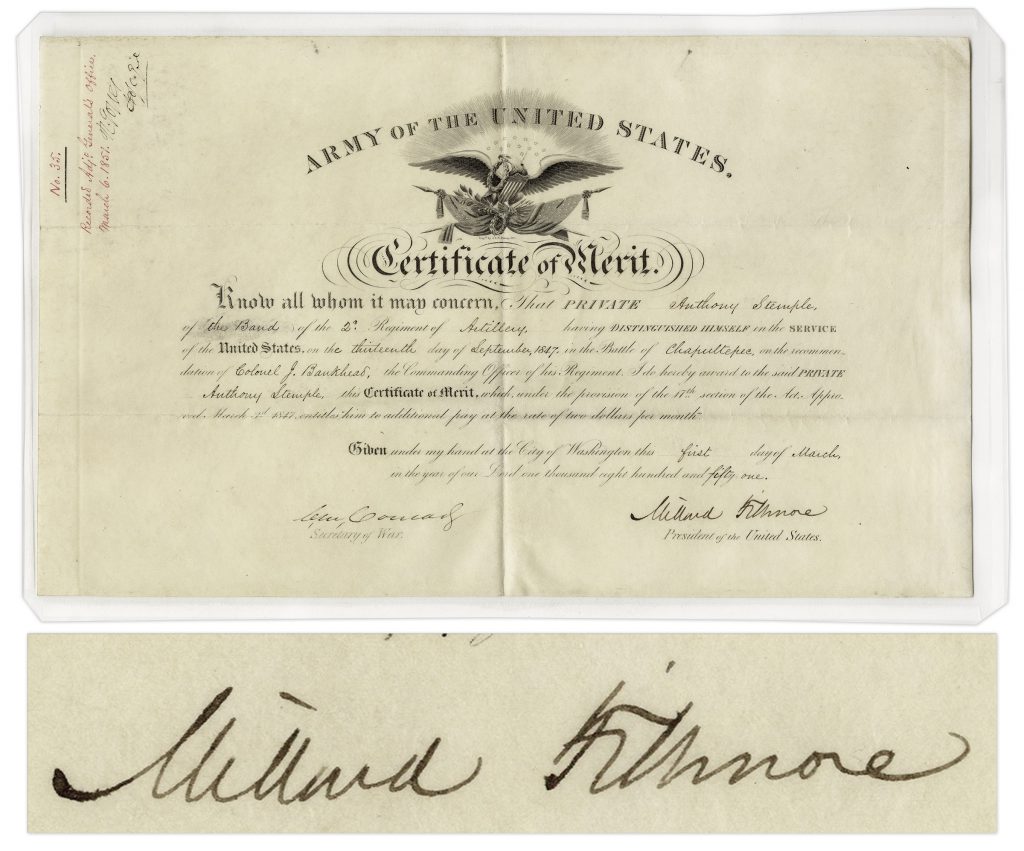 No. 35.
Recorded Adjt. General's Office,
March 6. 1851.
ARMY OF THE UNITED STATES.
Certificate of Merit.
Know all whom it may concern, That PRIVATE Anthony Stemple,
of the Band of the 2d. Regiment of Artillery, having DISTINGUISHED HIMSELF in the SERVICE
of the United States, on the thirteenth day of September, 1847. in the Battle of Chapultepec, on the recommen-
dation of Colonel J. Bankhead, the Commanding Officer of his Regiment, I do hereby award to the said PRIVATE
Anthony Stemple, this Certificate of Merit, which, under the provision of the 17th section of the Act. Appro-
ved. March 3d 1847, entitles him to additional pay at the rate of two dollars per month.
Given under my hand at the City of Washington this first day of March,
in the year of our Lord one thousand eight hundred and fifty-one.
Conrad
Secretary of War.
Millard Fillmore
President of the United States.
Millard Fillmore